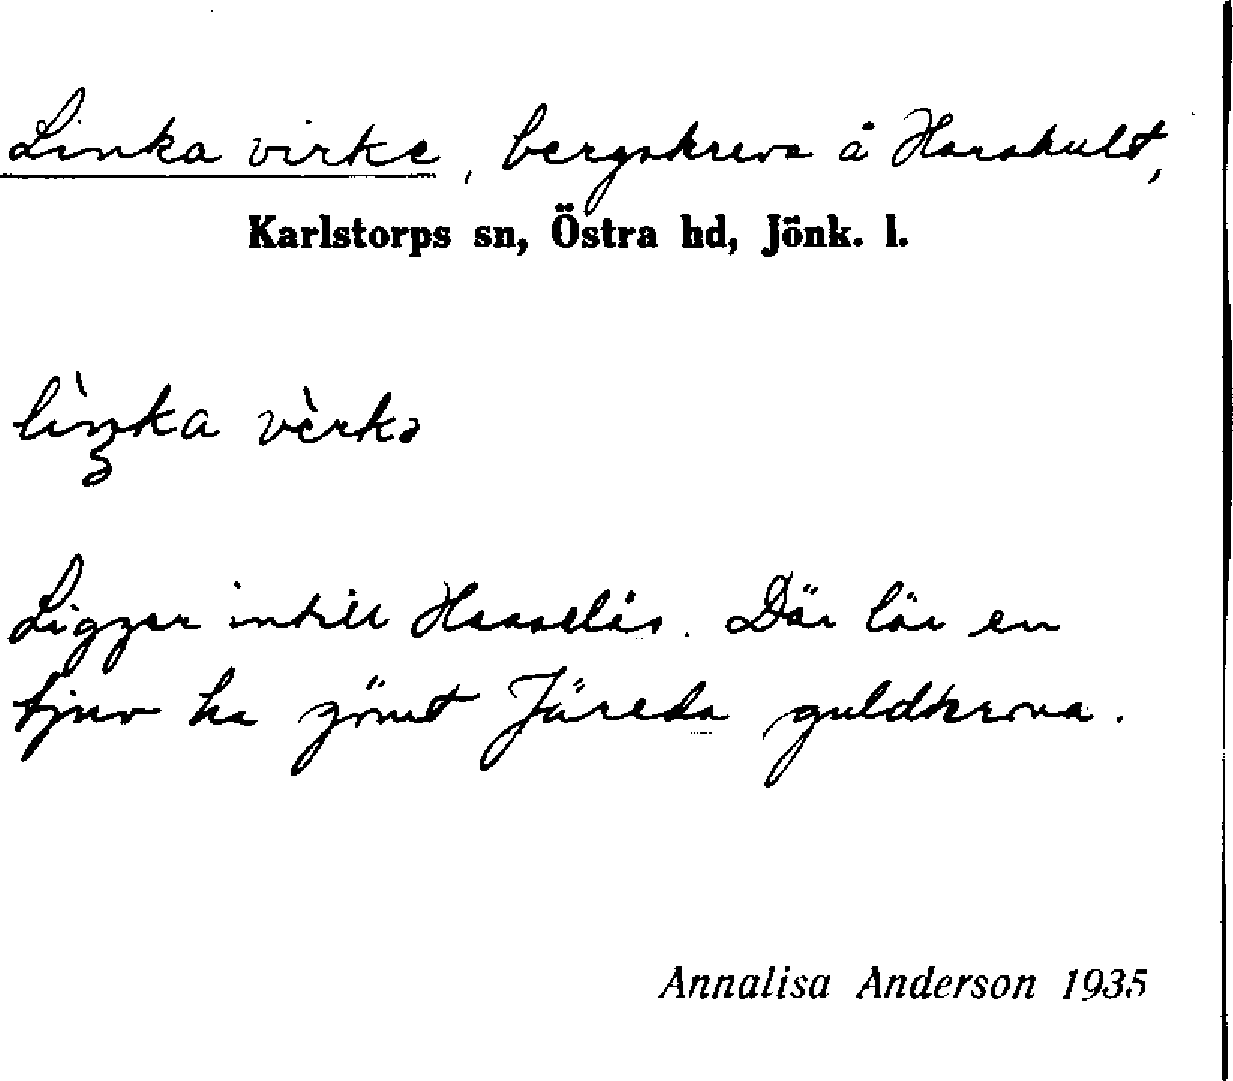 Linka virke, bergskreva å Harakult,
Karlstorps sn, Östra hd, Jönk. l.
lìŋka vèrkə
Ligger intill Där lär en
tjuv ha gömt Järeda guldkrona.
Annalisa Anderson 1935